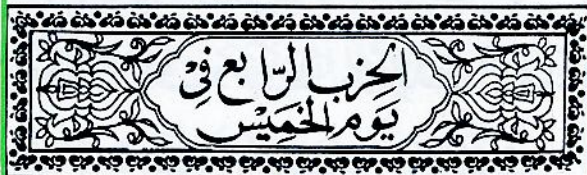 الحِزْبُ الرَّابِعُ فِي
يَوْمِ الْخَمِيْسِ